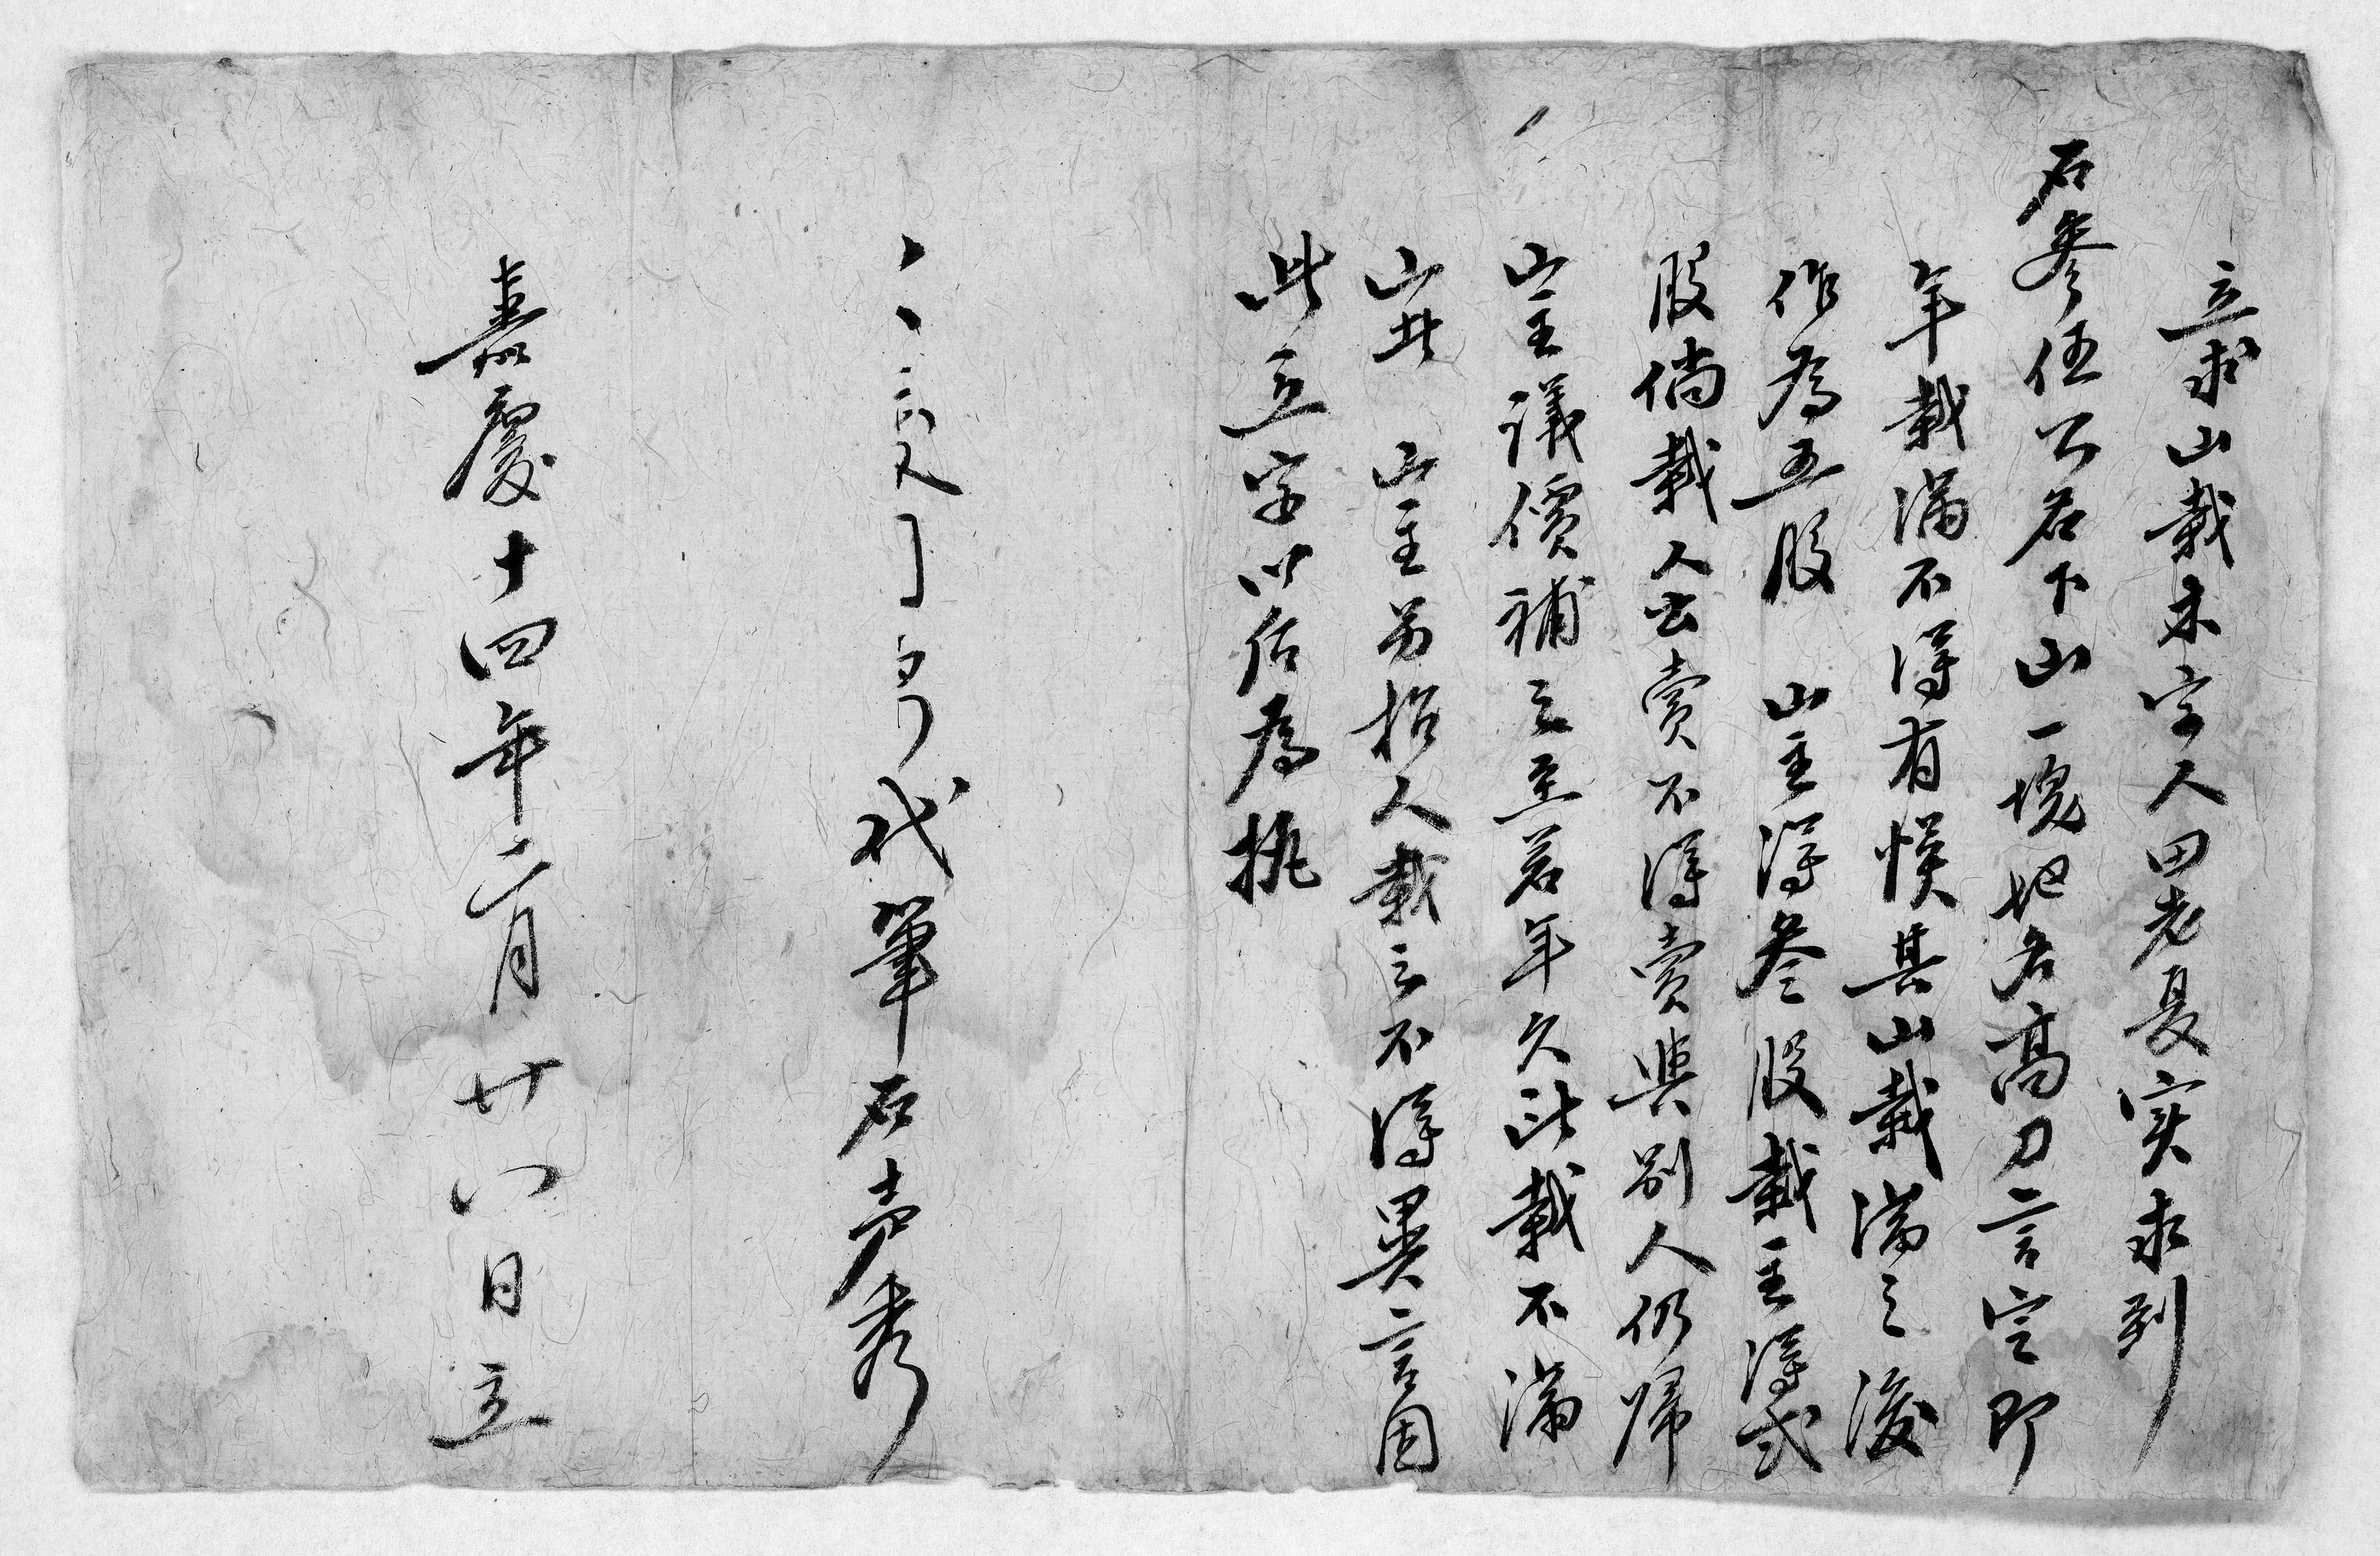 立求山栽木字人田老夏实求到
石參伍公名下山一塊地名高刀言定即
年栽满不得有悮其山栽满之後
作為五股 山主得叁股栽主得贰
股倘栽人出賣不得賣與别人仍歸
山主議價補之至若年久此栽不滿
山此 山主另招人栽之不得異言固
此立字以后為执
代筆石壳秀
嘉慶十四年二月廿八日立